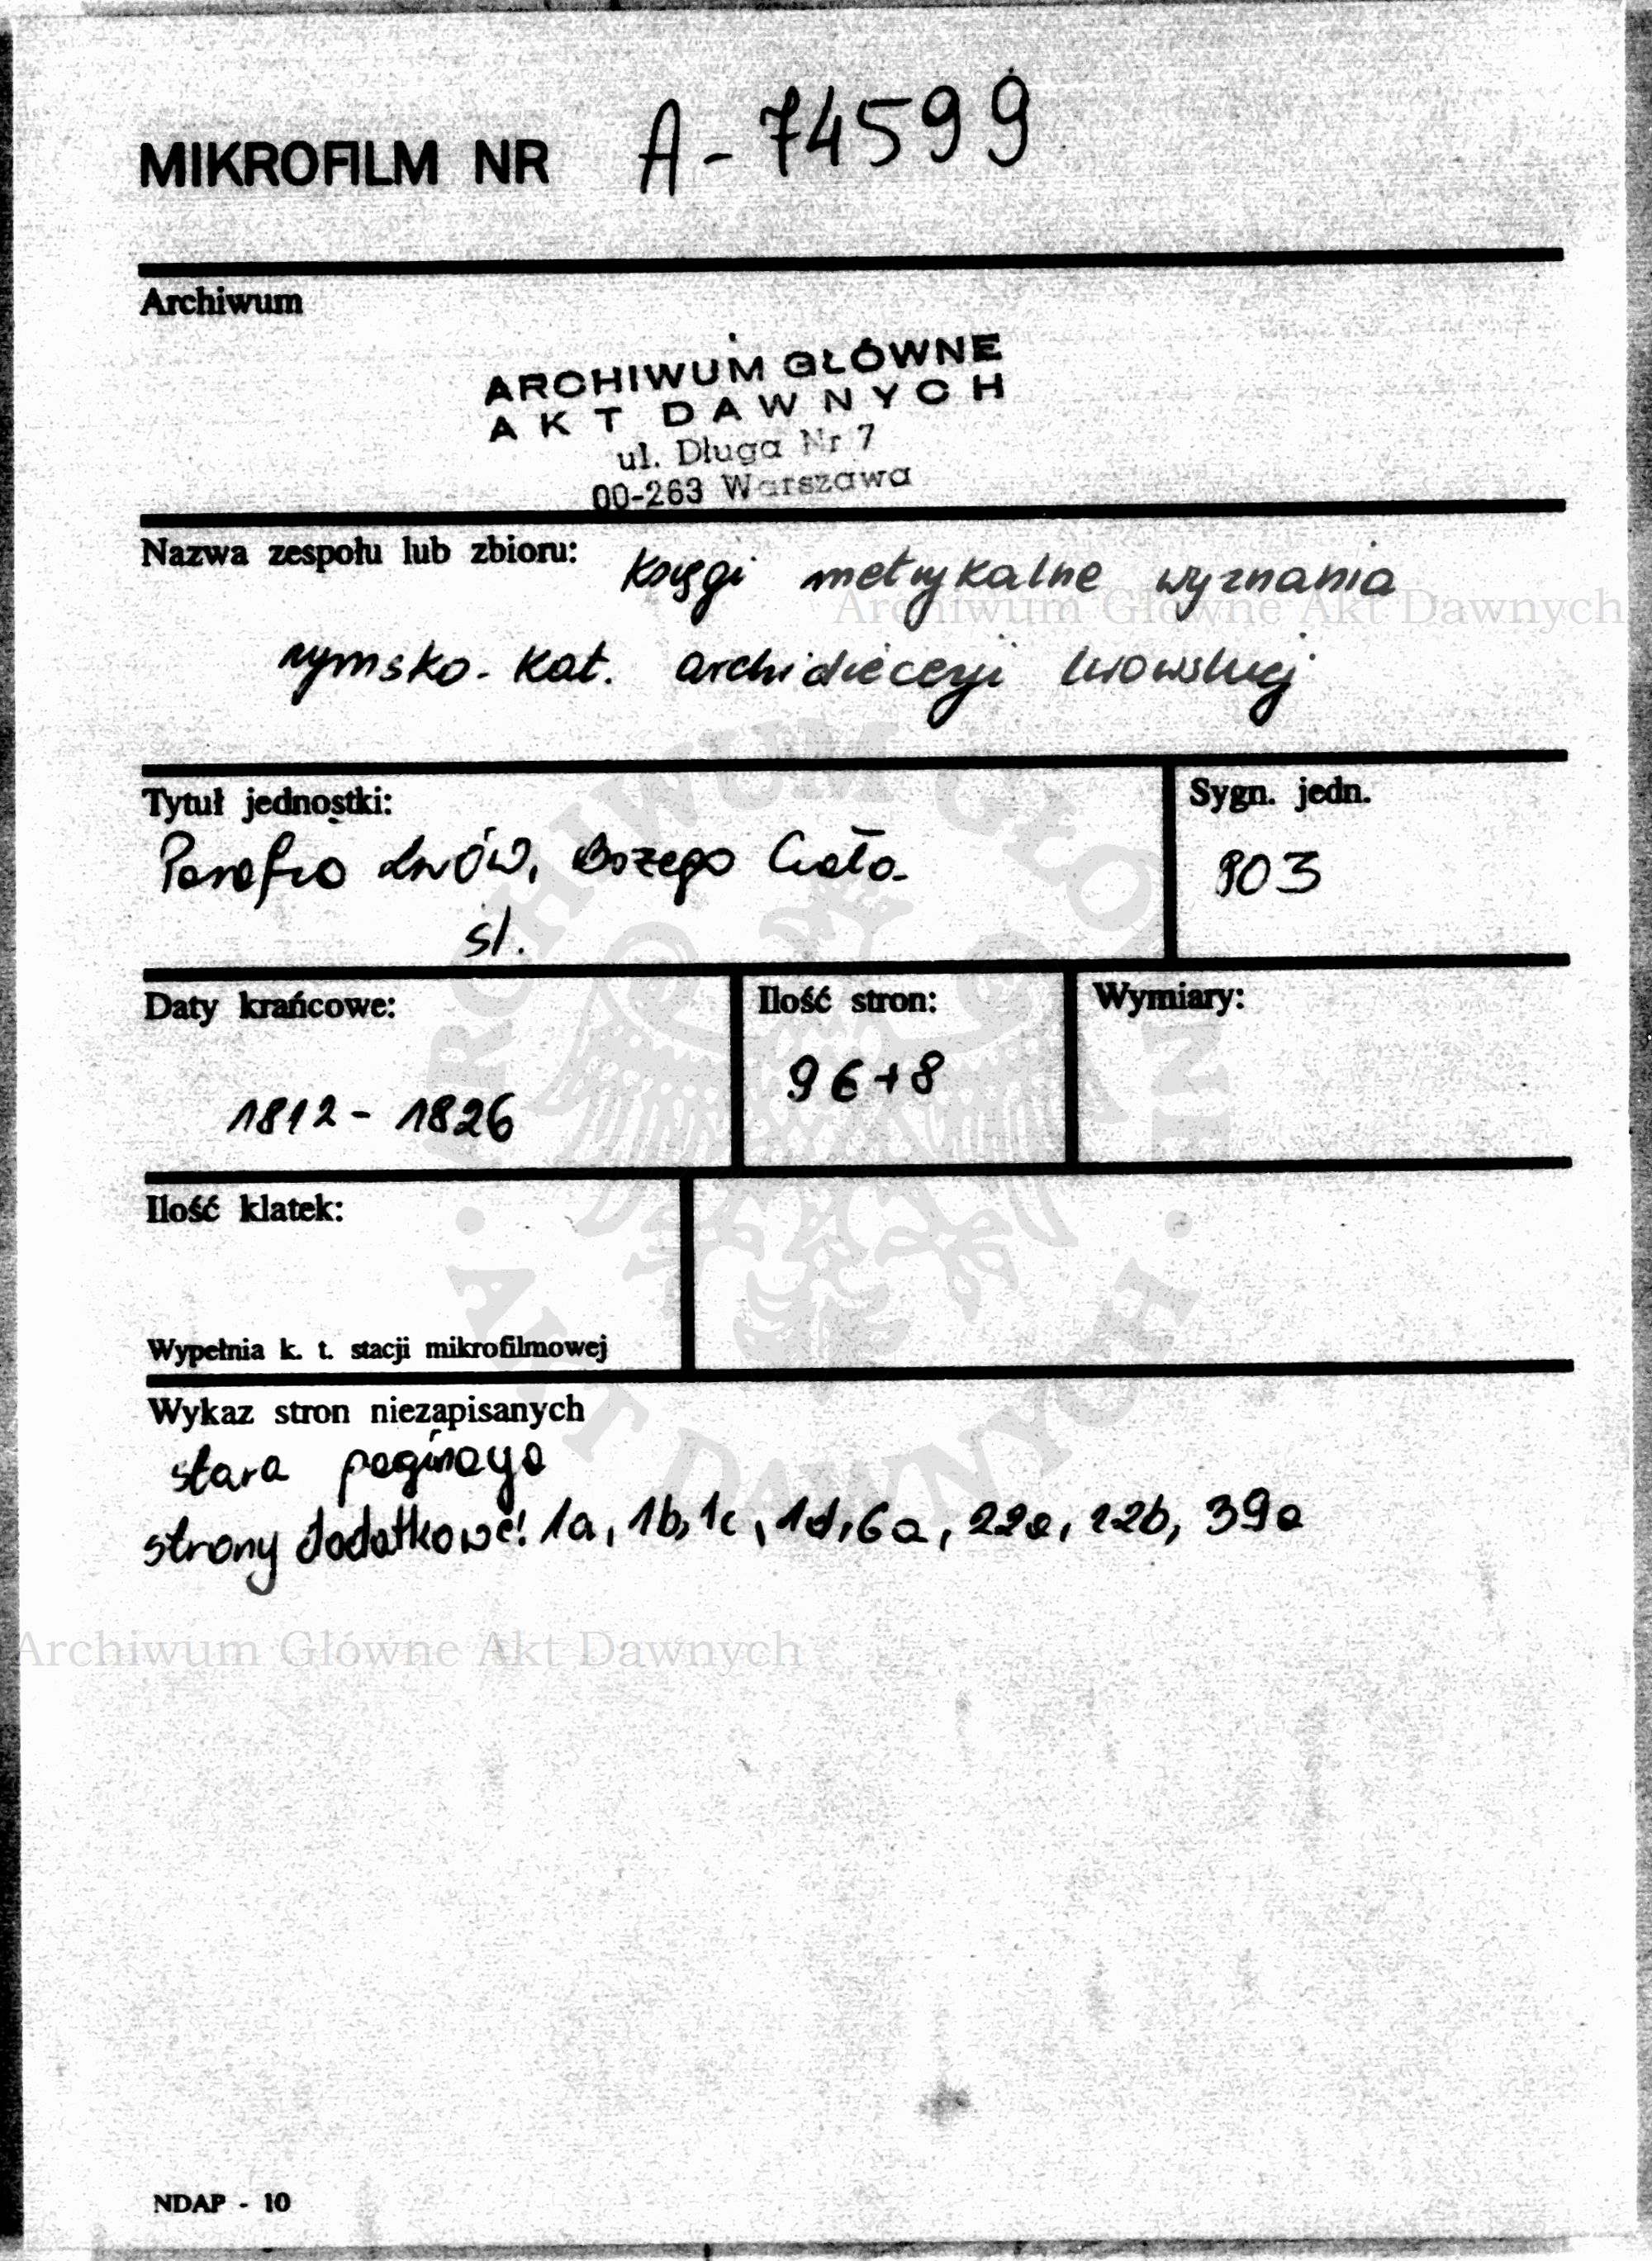 MIKROFILM NR A-74599
Archiwum
ARCHIWUM GŁÓWNE
AKT DAWNYCH
ul. Długa Nr 7
00-263 Warszawa
Nazwa zespołu lub zbioru: Księgi metrykalne wyznania
Archiwum Główne Akt Dawnych
rzymsko-kat. archidiecezji lwowskiej
Tytuł jednostki:
Parafia Lwów, Bożego Ciała
śl.
Sygn. jedn.
903
Daty krańcowe:
1812 - 1826
Ilość stron:
96+8
Wymiary:
Ilość klatek:
Wypełnia k. t. stacji mikrofilmowej
ARCHIWUM GŁÓWNE · AKT DAWNYCH ·
Wykaz stron niezapisanych
stara paginacja
strony dodatkowe: 1a, 1b, 1c, 1d, 6a, 22a, 22b, 39a
Archiwum Główne Akt Dawnych
NDAP - 10